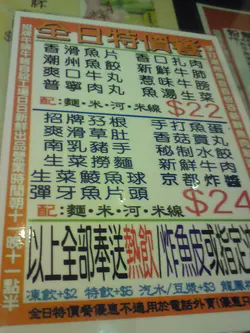 全日特價餐
香滑魚片 香口扎肉
潮州魚餃 新鮮牛肺
爽口牛丸 惹味牛膀
普寧肉丸 魚湯生菜
配:麵·米·河·米線 $22
招牌孖根 手打魚蛋
爽滑草肚 香菇貢丸
南乳豬手 秘制水餃
生菜撈麵 新鮮牛肉
生菜鯪魚球 京都炸醬
彈牙魚片頭
配:麵·米·河·米線 $24
以上全部奉送熱飲/炸魚皮或指定
凍飲+$2 特飲+$5 汽水/豆漿+$3
全日特價餐優惠不適用於電話外賣(優惠